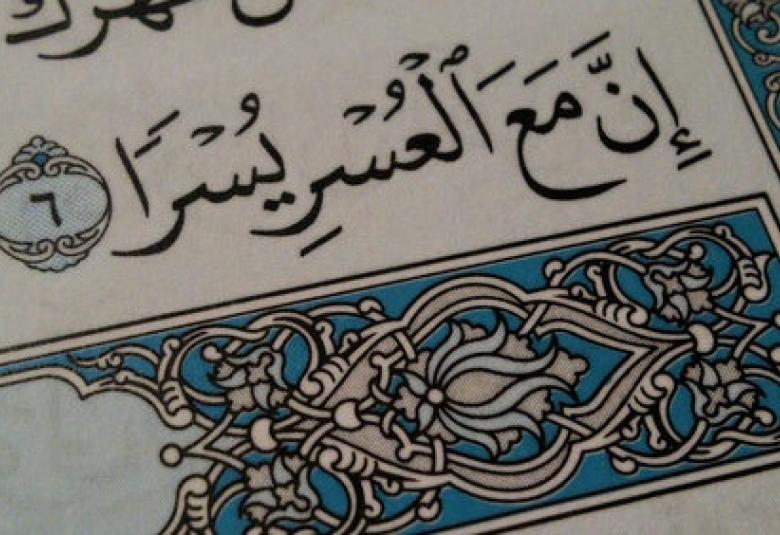 ظهرك
إِنَّ مَعَ ٱلْعُسْرِ يُسْرًا ٦